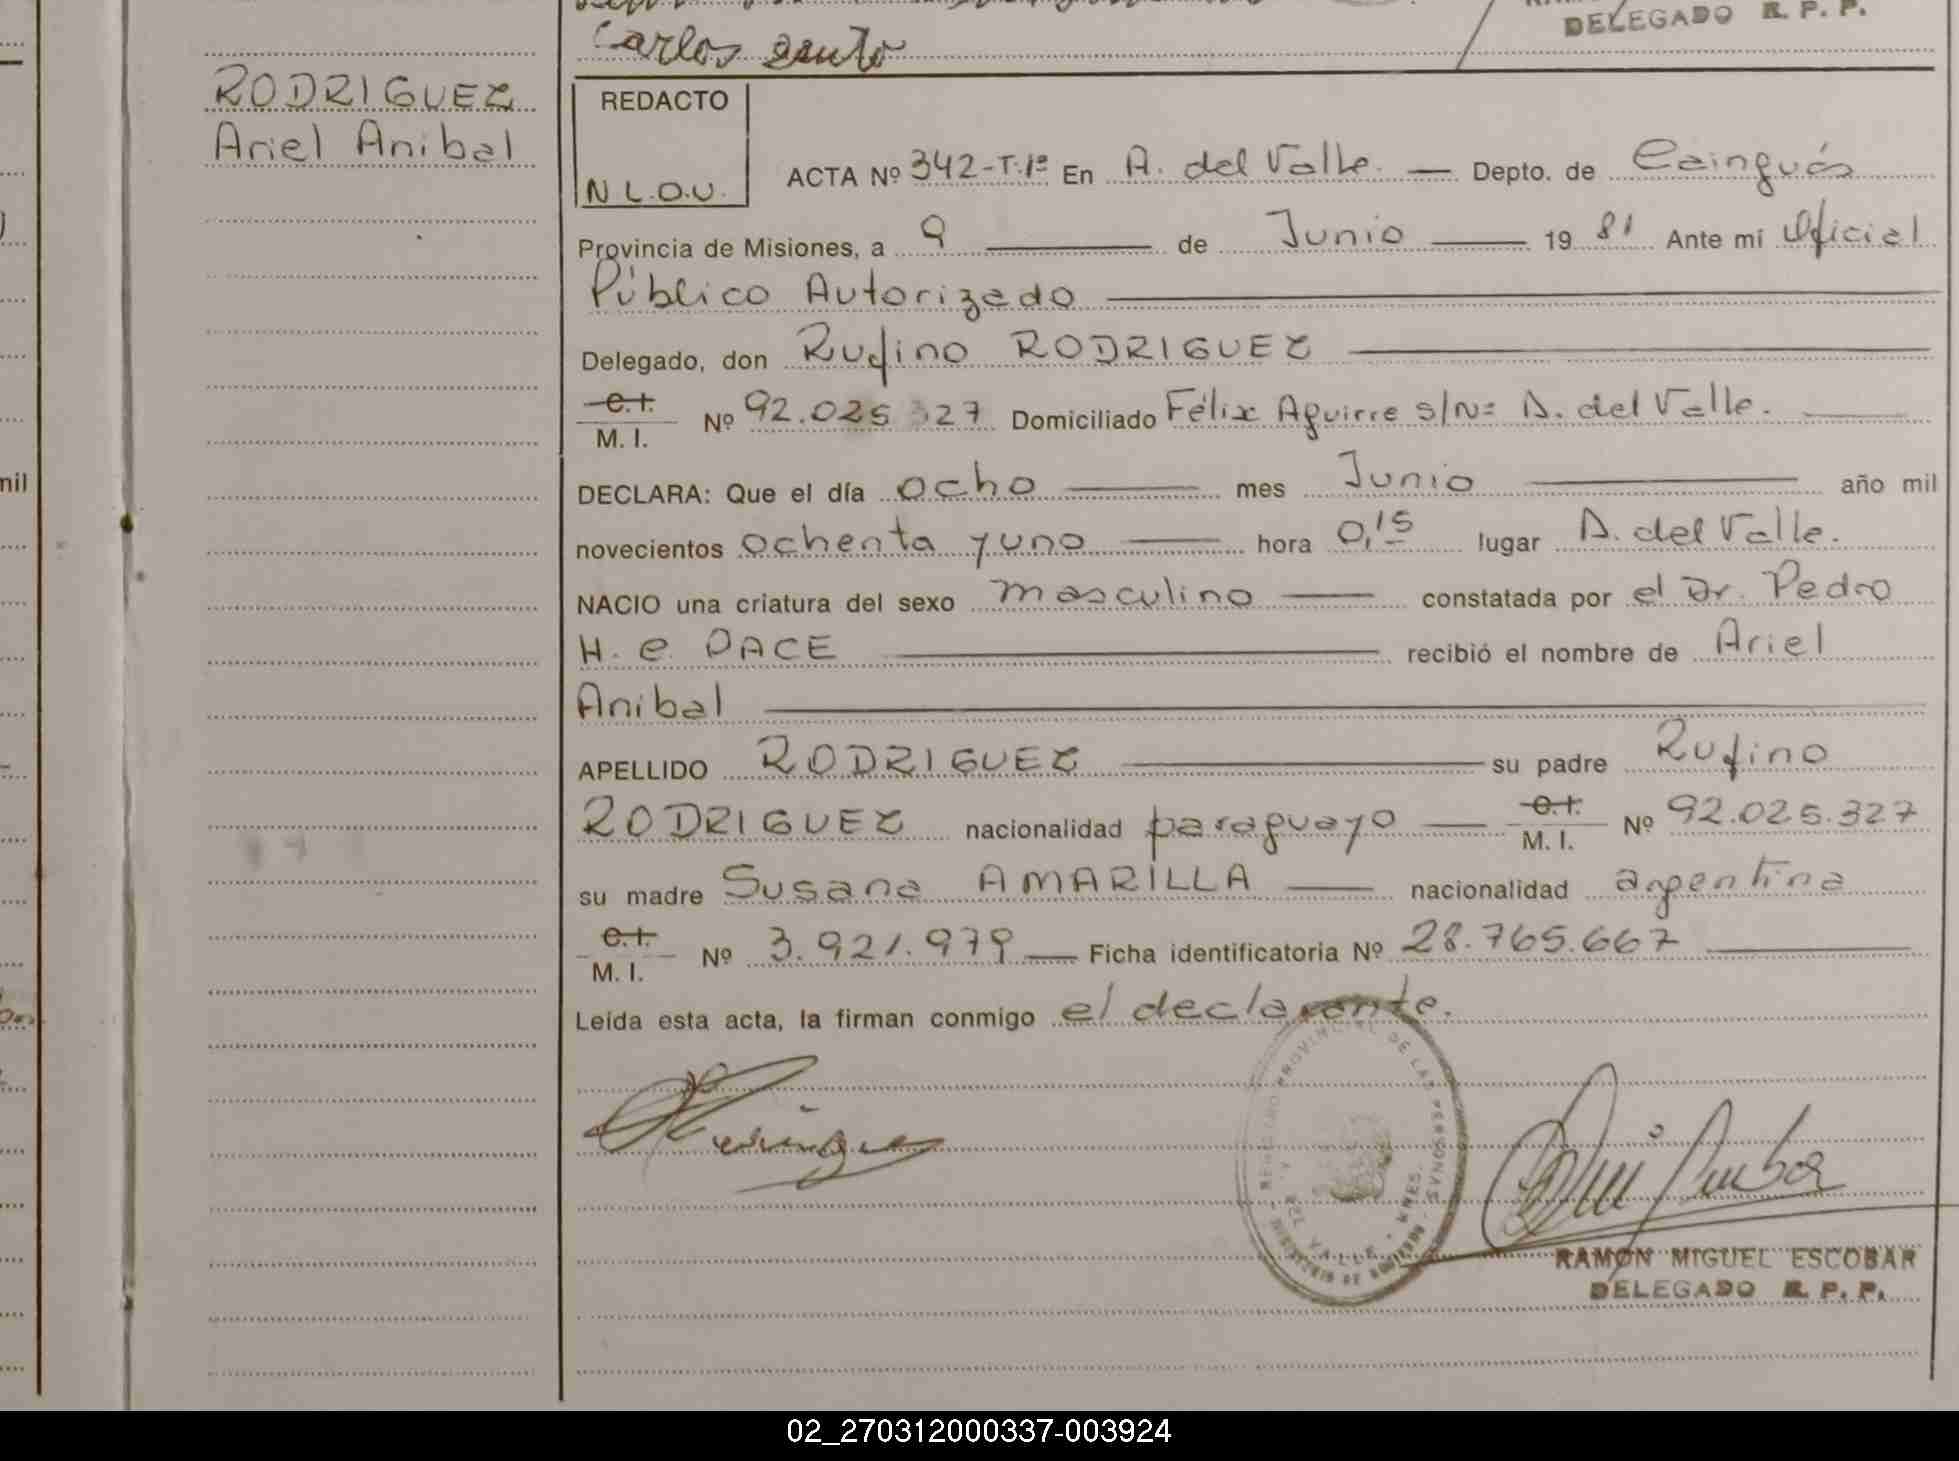 Carlos
DELEGADO R. P. P.
RODRIGUEZ
Ariel Anibal
REDACTO
N L.O.U.
ACTA Nº 342-T.1º En A. del Valle. — Depto. de Cainguás
Provincia de Misiones, a 9 — de Junio — 19 81 Ante mí Oficial
Público Autorizado —
Delegado, don Rufino RODRIGUEZ —
C.I.
M. I. Nº 92.025 327 Domiciliado Félix Aguirre s/Nº A. del Valle. —
DECLARA: Que el día ocho — mes Junio — año mil
novecientos ochenta y uno — hora 0,15 lugar A. del Valle.
NACIO una criatura del sexo masculino — constatada por el Dr. Pedro
H. C. PACE — recibió el nombre de Ariel
Anibal —
APELLIDO RODRIGUEZ — su padre Rufino
RODRIGUEZ nacionalidad paraguayo — C.I. M. I. Nº 92.025.327
su madre Susana AMARILLA — nacionalidad argentina
C.I.
M. I. Nº 3.921.979 — Ficha identificatoria Nº 28.765.667 —
Leída esta acta, la firman conmigo el declarante.
REGISTRO PROVINCIAL DE LAS PERSONAS
DEL VALLE - MNES.
MINISTERIO DE GOBIERNO
RAMON MIGUEL ESCOBAR
DELEGADO R. P. P.
mil
02_270312000337-003924